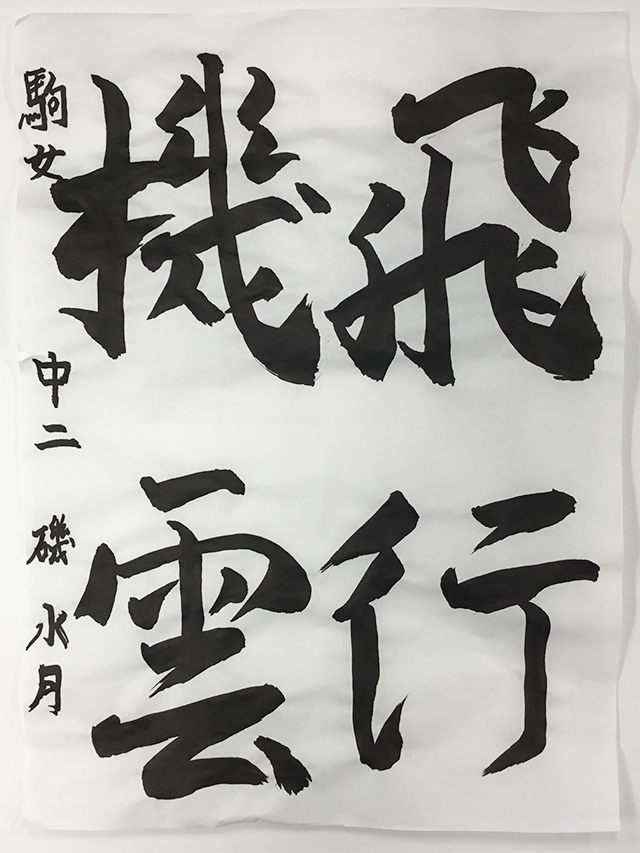 飛行
機雲
駒女 中二 磯 水月